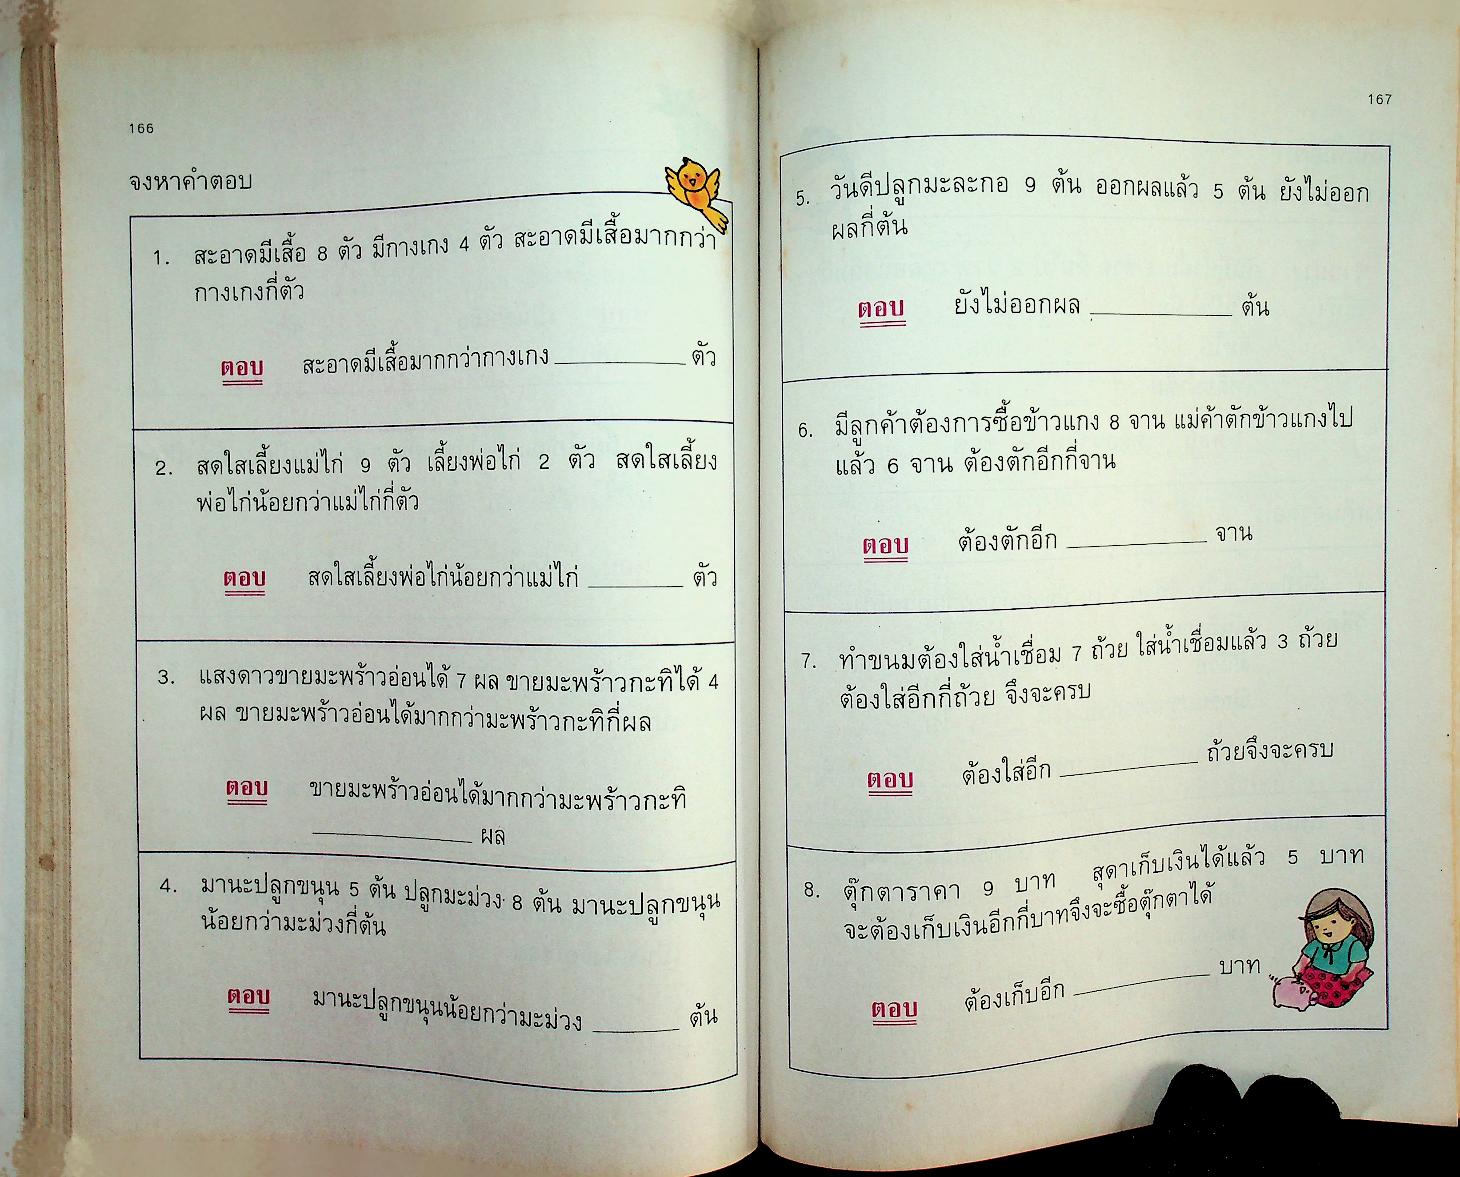 166
จงหาคำตอบ
1. สะอาดมีเสื้อ 8 ตัว มีกางเกง 4 ตัว สะอาดมีเสื้อมากกว่า
กางเกงกี่ตัว
ตอบ สะอาดมีเสื้อมากกว่ากางเกง ตัว
2. สดใสเลี้ยงแม่ไก่ 9 ตัว เลี้ยงพ่อไก่ 2 ตัว สดใสเลี้ยง
พ่อไก่น้อยกว่าแม่ไก่กี่ตัว
ตอบ สดใสเลี้ยงพ่อไก่น้อยกว่าแม่ไก่ ตัว
3. แสงดาวขายมะพร้าวอ่อนได้ 7 ผล ขายมะพร้าวกะทิได้ 4
ผล ขายมะพร้าวอ่อนได้มากกว่ามะพร้าวกะทิกี่ผล
ตอบ ขายมะพร้าวอ่อนได้มากกว่ามะพร้าวกะทิ
ผล
4. มานะปลูกขนุน 5 ต้น ปลูกมะม่วง 8 ต้น มานะปลูกขนุน
น้อยกว่ามะม่วงกี่ต้น
ตอบ มานะปลูกขนุนน้อยกว่ามะม่วง ต้น
167
5. วันดีปลูกมะละกอ 9 ต้น ออกผลแล้ว 5 ต้น ยังไม่ออก
ผลกี่ต้น
ตอบ ยังไม่ออกผล ต้น
6. มีลูกค้าต้องการซื้อข้าวแกง 8 จาน แม่ค้าตักข้าวแกงไป
แล้ว 6 จาน ต้องตักอีกกี่จาน
ตอบ ต้องตักอีก จาน
7. ทำขนมต้องใส่น้ำเชื่อม 7 ถ้วย ใส่น้ำเชื่อมแล้ว 3 ถ้วย
ต้องใส่อีกกี่ถ้วย จึงจะครบ
ตอบ ต้องใส่อีก ถ้วยจึงจะครบ
8. ตุ๊กตาราคา 9 บาท สุดาเก็บเงินได้แล้ว 5 บาท
จะต้องเก็บเงินอีกกี่บาทจึงจะซื้อตุ๊กตาได้
ตอบ ต้องเก็บอีก บาท